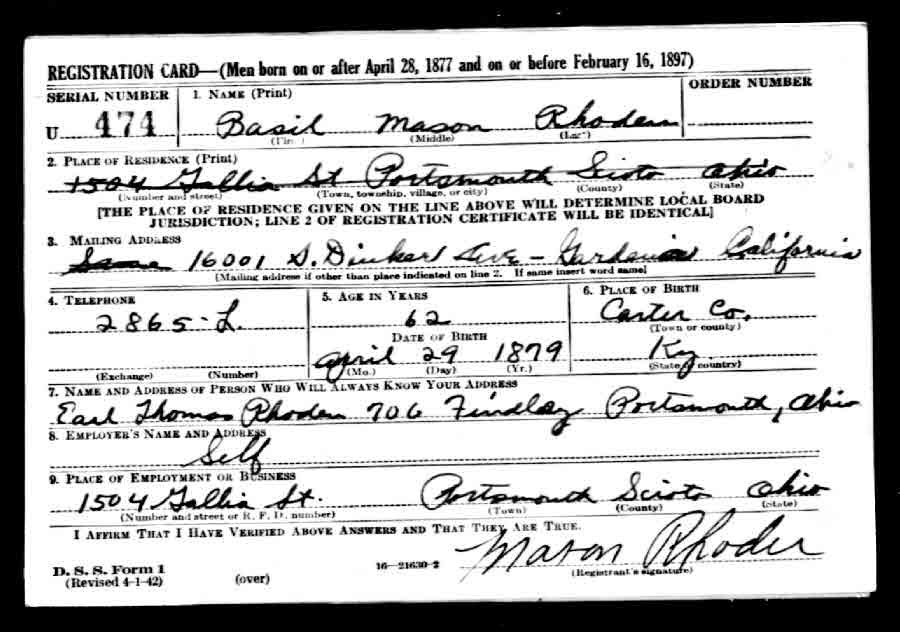 REGISTRATION CARD—(Men born on or after April 28, 1877 and on or before February 16, 1897)
SERIAL NUMBER 1. NAME (Print) ORDER NUMBER
U 474 Basil Mason Rhoden
(Middle) (Last)
2. PLACE OF RESIDENCE (Print)
1504 Gallia St Portsmouth Scioto Ohio
(Number and street) (Town, township, village, or city) (County) (State)
[THE PLACE OF RESIDENCE GIVEN ON THE LINE ABOVE WILL DETERMINE LOCAL BOARD
JURISDICTION; LINE 2 OF REGISTRATION CERTIFICATE WILL BE IDENTICAL]
3. MAILING ADDRESS
Same 16001 S. Ave - Gardenia California
[Mailing address if other than place indicated on line 2. If same insert word same]
4. TELEPHONE 5. AGE IN YEARS 6. PLACE OF BIRTH
2865-L. 62 Carter Co.
DATE OF BIRTH (Town or county)
April 29 1879 Ky
(Exchange) (Number) (Mo.) (Day) (Yr.) (State or country)
7. NAME AND ADDRESS OF PERSON WHO WILL ALWAYS KNOW YOUR ADDRESS
Earl Thomas Rhoden 706 Findlay Portsmouth, Ohio
8. EMPLOYER'S NAME AND ADDRESS
Self
9. PLACE OF EMPLOYMENT OR BUSINESS
1504 Gallia St. Portsmouth Scioto Ohio
(Number and street or R. F. D. number) (Town) (County) (State)
I AFFIRM THAT I HAVE VERIFIED ABOVE ANSWERS AND THAT THEY ARE TRUE.
Mason Rhoden
D. S. S. Form 1 16—21630-2 (Registrant's signature)
(Revised 4-1-42) (over)